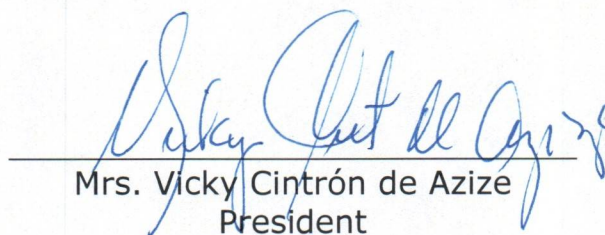 Vicky Cint de Azize
Mrs. Vicky Cintrón de Azize
President